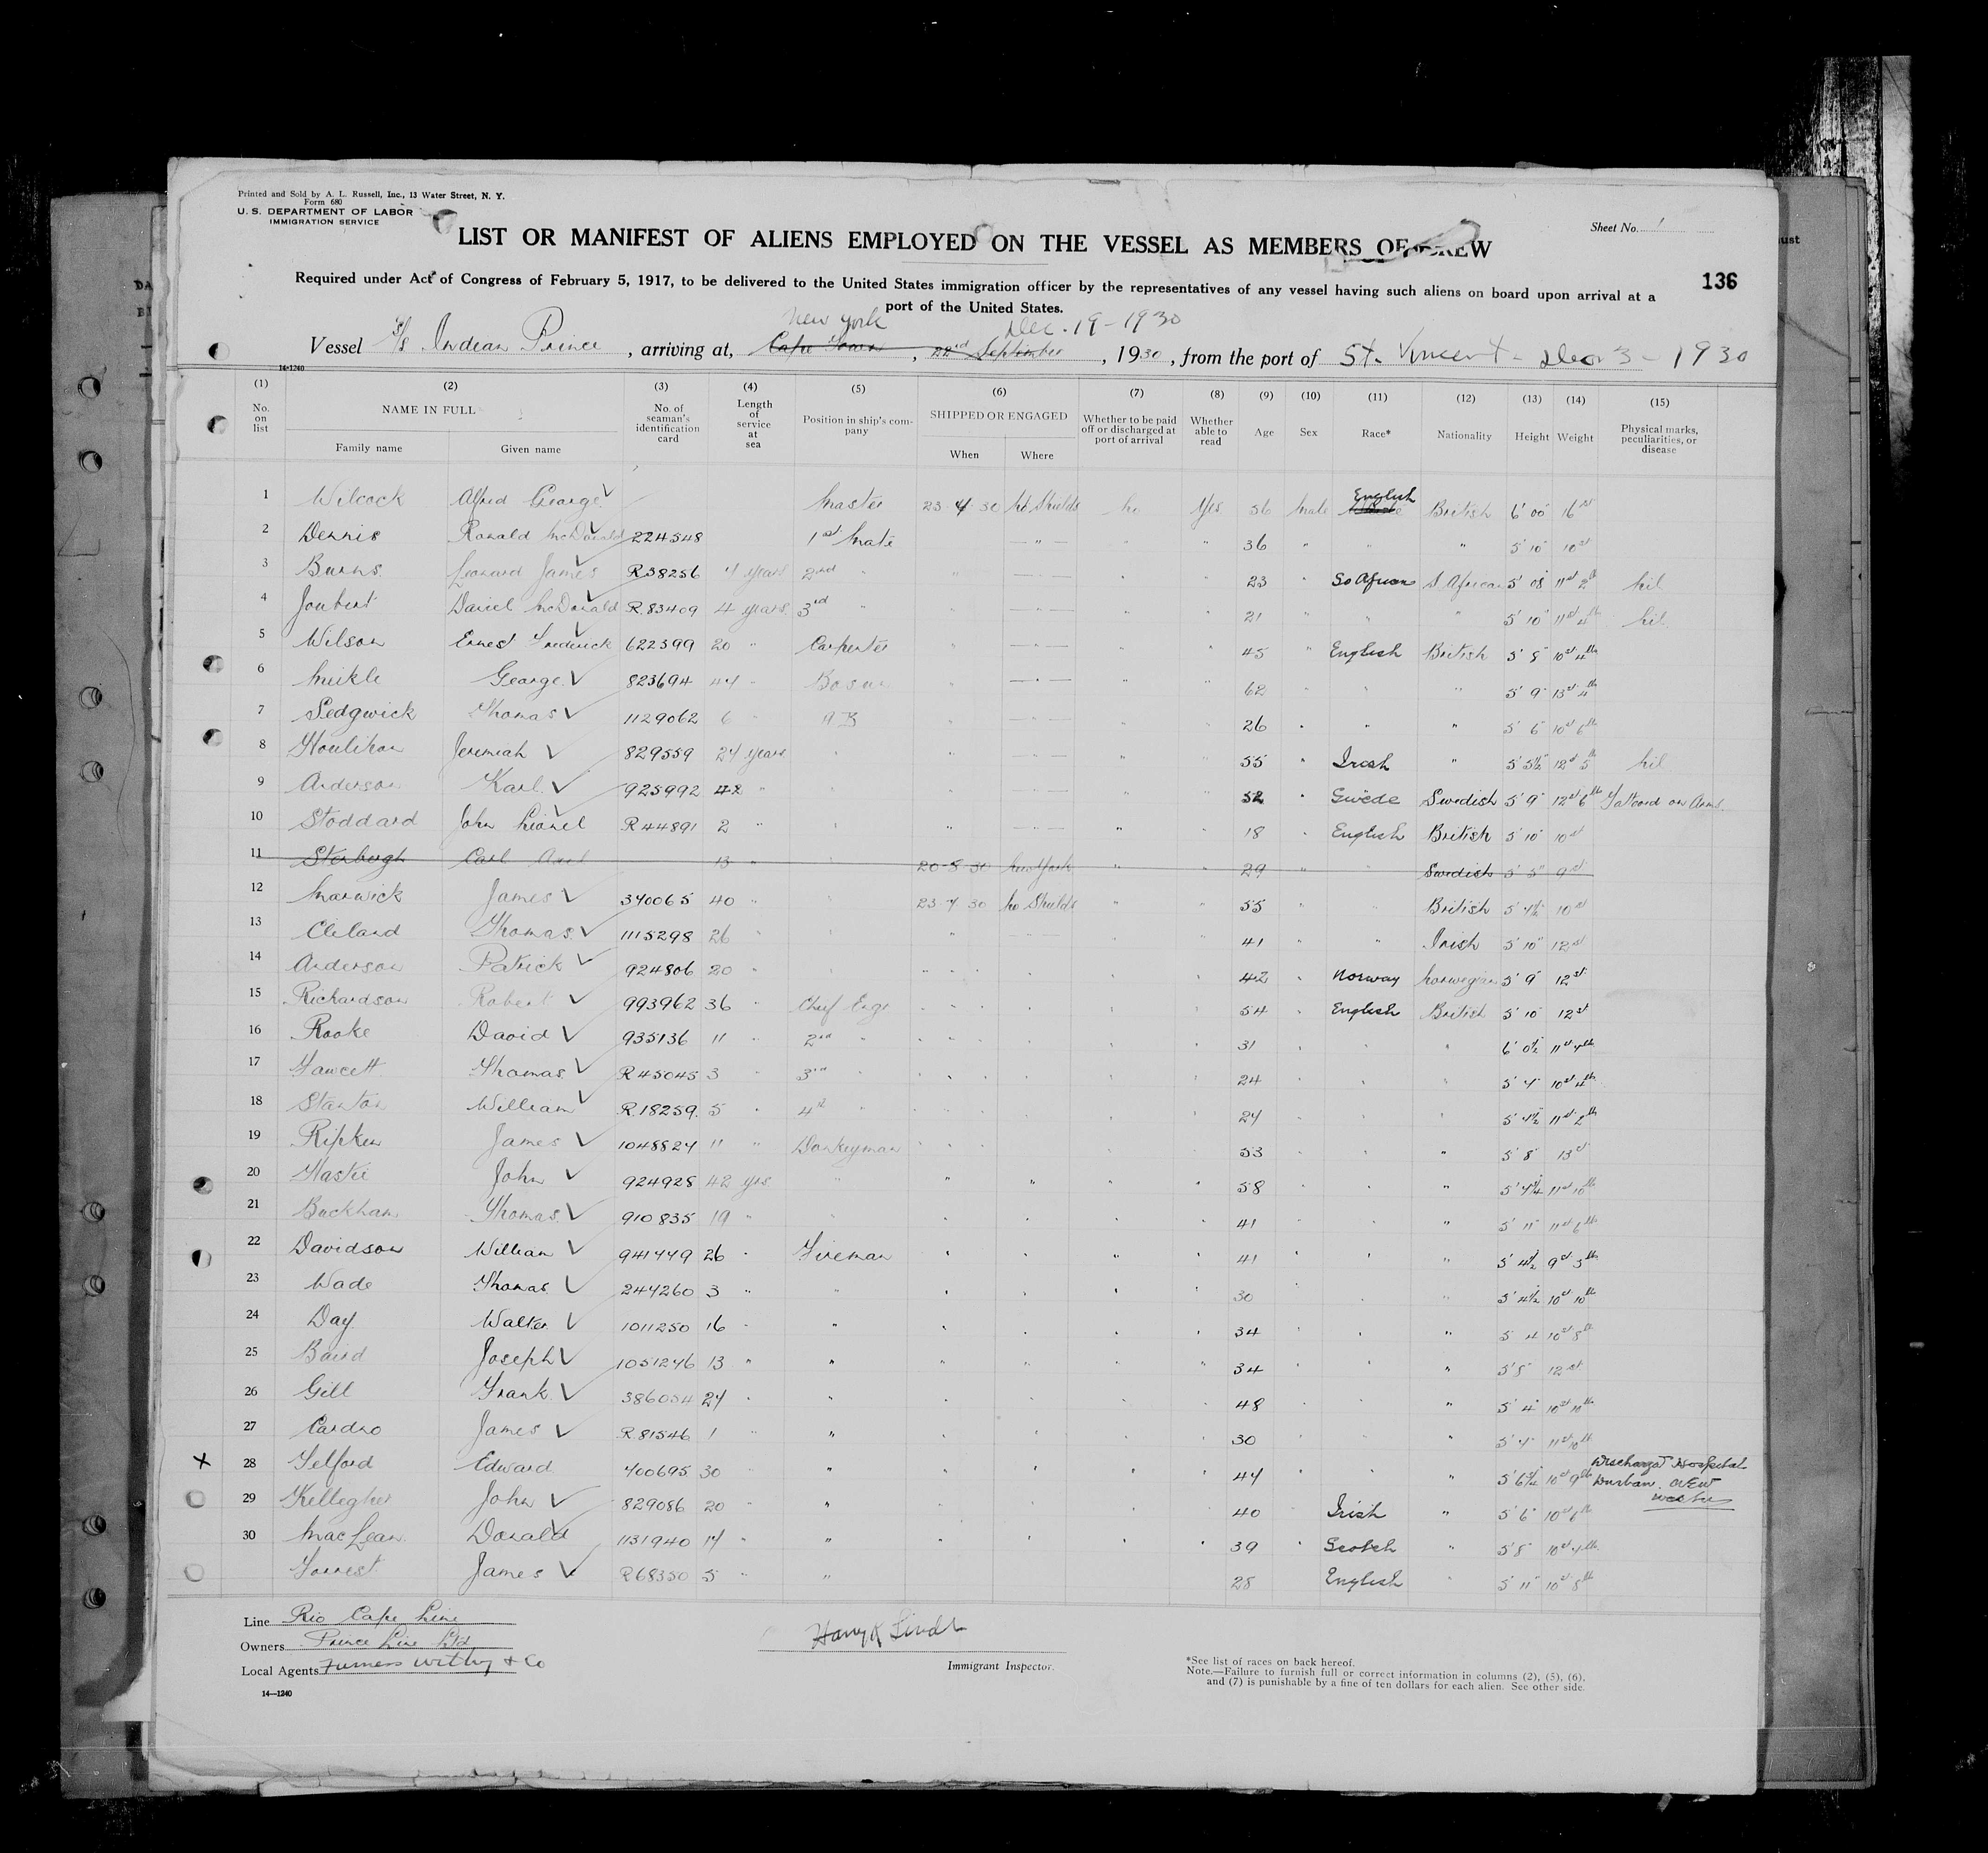 Printed and Sold by A. L. Russell, Inc., 13 Water Street, N. Y.
Form 680
U. S. DEPARTMENT OF LABOR
IMMIGRATION SERVICE
Sheet No. 1
LIST OR MANIFEST OF ALIENS EMPLOYED ON THE VESSEL AS MEMBERS OF CREW
136
Required under Act of Congress of February 5, 1917, to be delivered to the United States immigration officer by the representatives of any vessel having such aliens on board upon arrival at a
port of the United States.
New York Dec. 19-1930
Vessel S/S Indian Prince, arriving at, Cape Town, 22nd September, 1930, from the port of St. Vincent - Dec 3 - 1930
14-1240
(1) (2) (3) (4) (5) (6) (7) (8) (9) (10) (11) (12) (13) (14) (15)
No. on list NAME IN FULL Family name Given name No. of seaman's identification card Length of service at sea Position in ship's company SHIPPED OR ENGAGED When Where Whether to be paid off or discharged at port of arrival Whether able to read Age Sex Race* Nationality Height Weight Physical marks, peculiarities, or disease
1 Wilcock Alfred George ✓ Master 23 4 30 No Shields no Yes 56 Male English British 6' 00" 16 st
2 Dennis Ronald McDonald ✓ 224548 1st Mate " " " 36 " " " 5' 10" 10 st
3 Burns Leonard James ✓ R38256 4 years 2nd " " " " " 23 " So African S. African 5' 08" 11 st 2 lb nil
4 Joubert Daniel McDonald ✓ R.83409 4 years 3rd " " " " " 21 " " " 5' 10" 11 st 4 lb nil
5 Wilson Ernest Frederick ✓ 622399 20 " Carpenter " " " " 45 " English British 5' 8" 10 st 4 lb
6 Meikle George ✓ 823694 44 " Bosun " " " " 62 " " " 5' 9" 13 st 4 lb
7 Sedgwick Thomas ✓ 1129062 6 " AB " " " " 26 " " " 5' 6" 10 st 6 lb
8 Houlihan Jeremiah ✓ 829559 24 years " " " " " 55 " Irish " 5' 5½" 12 st 5 lb nil
9 Anderson Karl ✓ 925992 42 " " " " " " 52 " Swede Swedish 5' 9" 12 st 6 lb Tattooed on Arms
10 Stoddard John Lionel ✓ R44891 2 " " " " " " 18 " English British 5' 10" 10 st
11 Storbergh Carl Axel 13 " " 20-8-30 New York " " 29 " " Swedish 5' 5" 9 st
12 Marwick James ✓ 340065 40 " " 23 4 30 No Shields " " 55 " " British 5' 4½" 10 st
13 Cleland Thomas ✓ 1115298 26 " " " " " " 41 " " Irish 5' 10" 12 st
14 Anderson Patrick ✓ 924806 20 " " " " " " 42 " Norway Norwegian 5' 9" 12 st
15 Richardson Robert ✓ 993962 36 " Chief Engr " " " " 54 " English British 5' 10" 12 st
16 Rooke David ✓ 935136 11 " 2nd " " " " " 31 " " " 6' 0½" 11 st 4 lb
17 Fawcett Thomas ✓ R45045 3 " 3rd " " " " " 24 " " " 5' 4" 10 st 4 lb
18 Stanton William ✓ R.18259 5 " 4th " " " " " 24 " " " 5' 4½" 11 st 2 lb
19 Ripken James ✓ 1048824 11 " Donkeyman " " " " 53 " " " 5' 8" 13 st
20 Hastie John ✓ 924928 42 yrs " " " " " 58 " " " 5' 4¼" 11 st 10 lb
21 Buckham Thomas ✓ 910835 19 " " " " " " 41 " " " 5' 11" 11 st 6 lb
22 Davidson William ✓ 941449 26 " Fireman " " " " 41 " " " 5' 4½" 9 st 5 lb
23 Wade Thomas ✓ 244260 3 " " " " " " 30 " " " 5' 4½" 10 st 10 lb
24 Day Walter ✓ 1011250 16 " " " " " " 34 " " " 5' 4" 10 st 8 lb
25 Baird Joseph ✓ 1051246 13 " " " " " " 34 " " " 5' 8" 12 st
26 Gill Frank ✓ 386054 24 " " " " " " 48 " " " 5' 4" 10 st 10 lb
27 Cardno James ✓ R.81546 1 " " " " " " 30 " " " 5' 4" 11 st 10 lb
X 28 Telford Edward 400695 30 " " " " " " 44 " " " 5' 6¼" 10 st 9 lb Discharged Hospital Durban
29 Kellegher John ✓ 829086 20 " " " " " " 40 " Irish " 5' 6" 10 st 6 lb
30 MacLean Donald ✓ 1131940 14 " " " " " " 39 " Scotch " 5' 8" 10 st 4 lb
Forrest James ✓ R68350 5 " " 28 English " 5' 11" 10 st 8 lb
Line Rio Cape Line
Owners Prince Line Ltd
Local Agents Furness Withy & Co
Harry K Lindt
Immigrant Inspector.
*See list of races on back hereof.
Note.—Failure to furnish full or correct information in columns (2), (5), (6),
and (7) is punishable by a fine of ten dollars for each alien. See other side.
14—1240